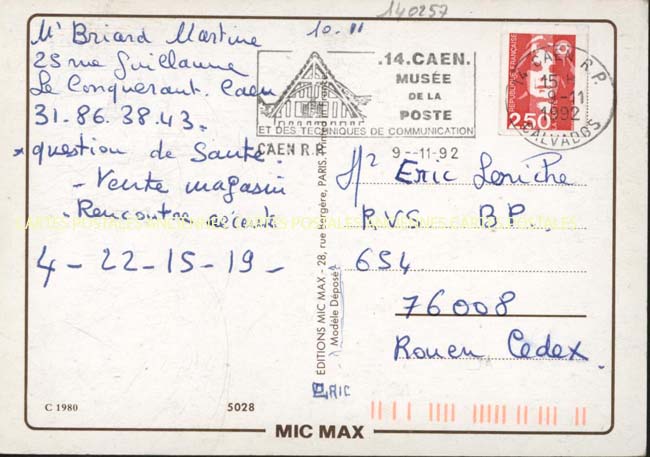 140257
10.11
Mr Briard Martine
25 rue Guillaume
Le Conquerant. Caen
31.86.38.43.
* question de Santé.
- Vente magasin
Rencontre
4 - 22 - 15 - 19 -
.14.CAEN.
MUSÉE
DE LA
POSTE
ET DES TECHNIQUES DE COMMUNICATION
CAEN R.P.
9 - -11-92
CAEN R.P.
15
9-11
1992
CALVADOS
REPUBLIQUE FRANÇAISE
2,50
Eric Leriche
R.V.S. B.P.
654
76008
Rouen Cedex.
EDITIONS MIC MAX - 28, rue Bergère, PARIS.
Modèle Déposé
ERIC
CARTES POSTALES ANCIENNES CARTES POSTALES ANCIENNES CARTES POSTALES
C 1980
5028
MIC MAX